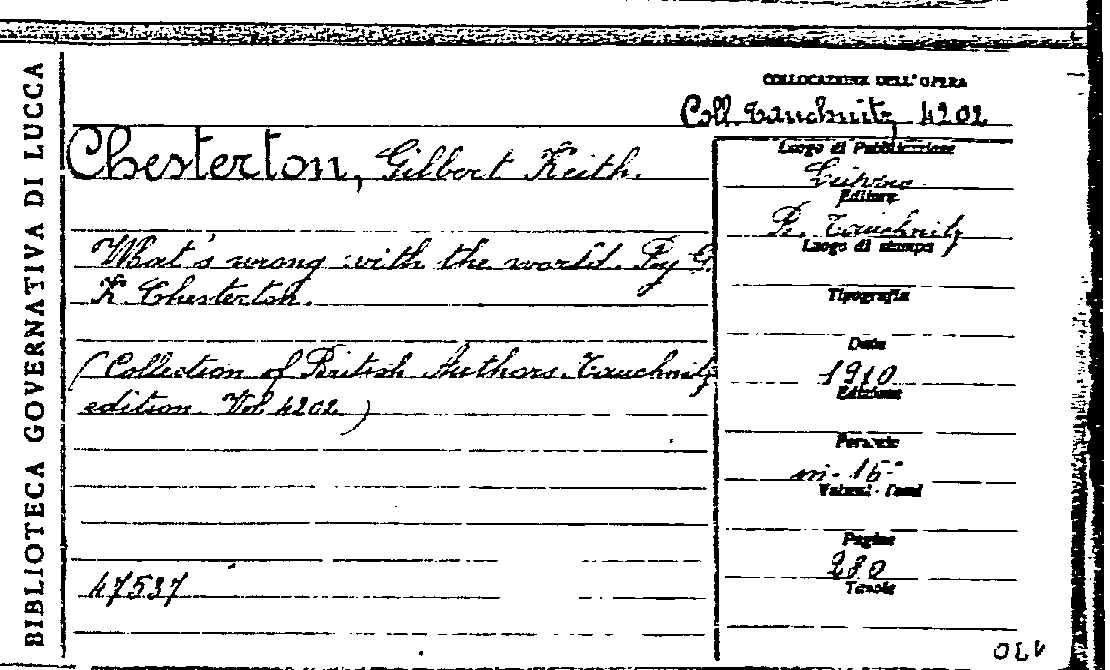 BIBLIOTECA GOVERNATIVA DI LUCCA
COLLOCAZIONE DELL'OPERA
Coll. Tauchnitz 4202
Chesterton, Gilbert Keith.
What's wrong with the world. By G.
K. Chesterton.
(Collection of British Authors. Tauchnitz
edition. Vol. 4202.)
47537
Luogo di Pubblicazione
Leipzig
Editore
B. Tauchnitz
Luogo di stampa
Tipografia
Data
1910
Edizione
Formato
in-16°
Volumi - Tomi
Pagine
280
Tavole